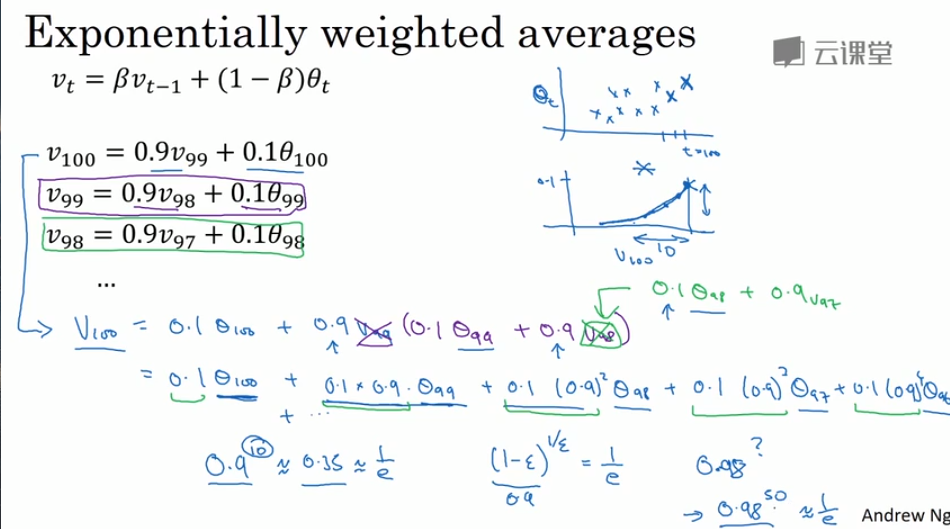 Exponentially weighted averages
云课堂
v_t = βv_{t−1} + (1 − β)θ_t
θ_t
t=100
v_{100} = 0.9v_{99} + 0.1θ_{100}
v_{99} = 0.9v_{98} + 0.1θ_{99}
v_{98} = 0.9v_{97} + 0.1θ_{98}
...
0.1
10
V_{100}
0.1 θ_{98} + 0.9 v_{97}
V_{100} = 0.1 θ_{100} + 0.9 v_{99} (0.1 θ_{99} + 0.9 v_{98})
= 0.1 θ_{100} + 0.1 × 0.9 · θ_{99} + 0.1 (0.9)² θ_{98} + 0.1 (0.9)³ θ_{97} + 0.1 (0.9)⁴ θ_{96}
+ ...
0.9^{10} ≈ 0.35 ≈ 1/e
(1-ε)^{1/ε} = 1/e
0.9
0.98^?
→ 0.98^{50} ≈ 1/e
Andrew Ng